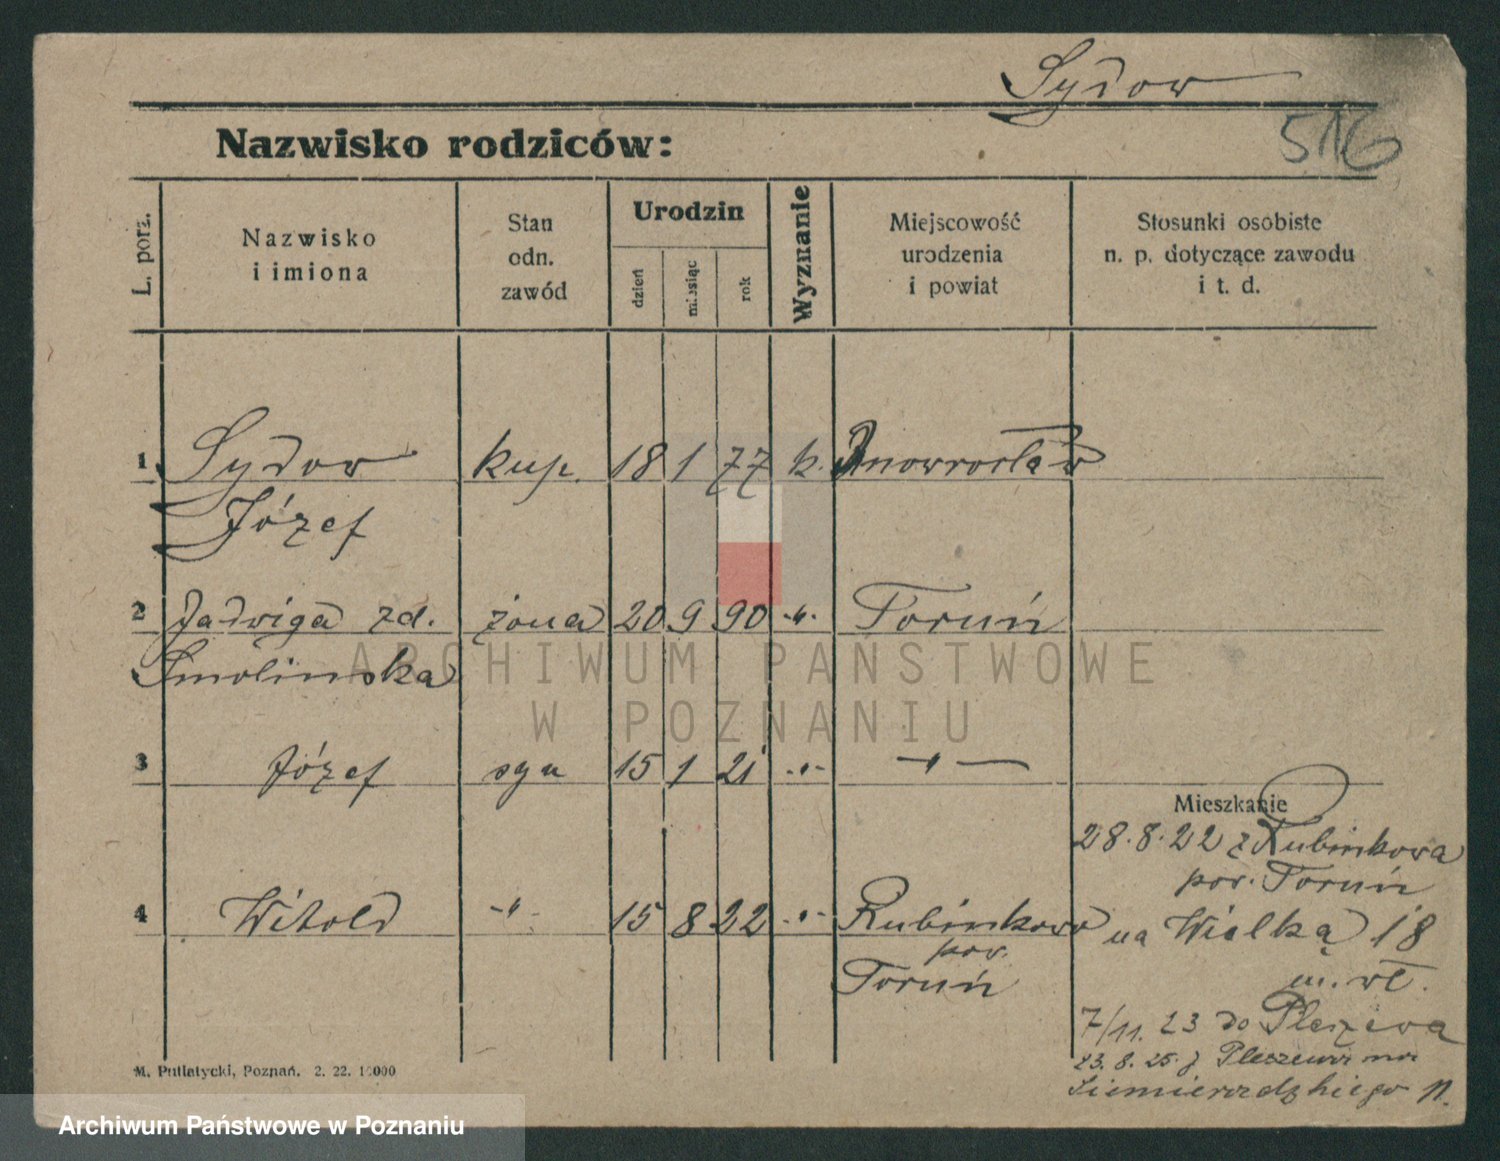 Sydow
516
Nazwisko rodziców:
L. porz.
Nazwisko
i imiona
Stan
odn.
zawód
Urodzin
dzień
miesiąc
rok
Wyznanie
Miejscowość
urodzenia
i powiat
Stosunki osobiste
n. p. dotyczące zawodu
i t. d.
1. Sydow kup. 18 1 77 k. Inowrocław
Józef
2 Jadwiga zd. żona 20 9 90 -"- Toruń
Smolinska
3 Józef syn 15 1 21 -"- -"-
Mieszkanie
28.8.22 z Rubinkowa
pow. Toruń
4 Witold -"- 15 8 22 -"- Rubinkowo
pow.
Toruń
na Wielką 18
m. wł.
7/11. 23 do Pleszewa
23. 8. 25. z Pleszewa na
11.
M. Putiatycki, Poznań. 2. 22. 10000
ARCHIWUM PAŃSTWOWE
W POZNANIU
Archiwum Państwowe w Poznaniu